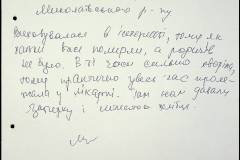 Миколаївського р-ну
виховувалась в інтернаті, тому як
батьки вже померли, а родичів
не було. В ті часи сильно хворіла,
тому практично увесь час проле-
жала у лікарні. Там нам давали
затірку і